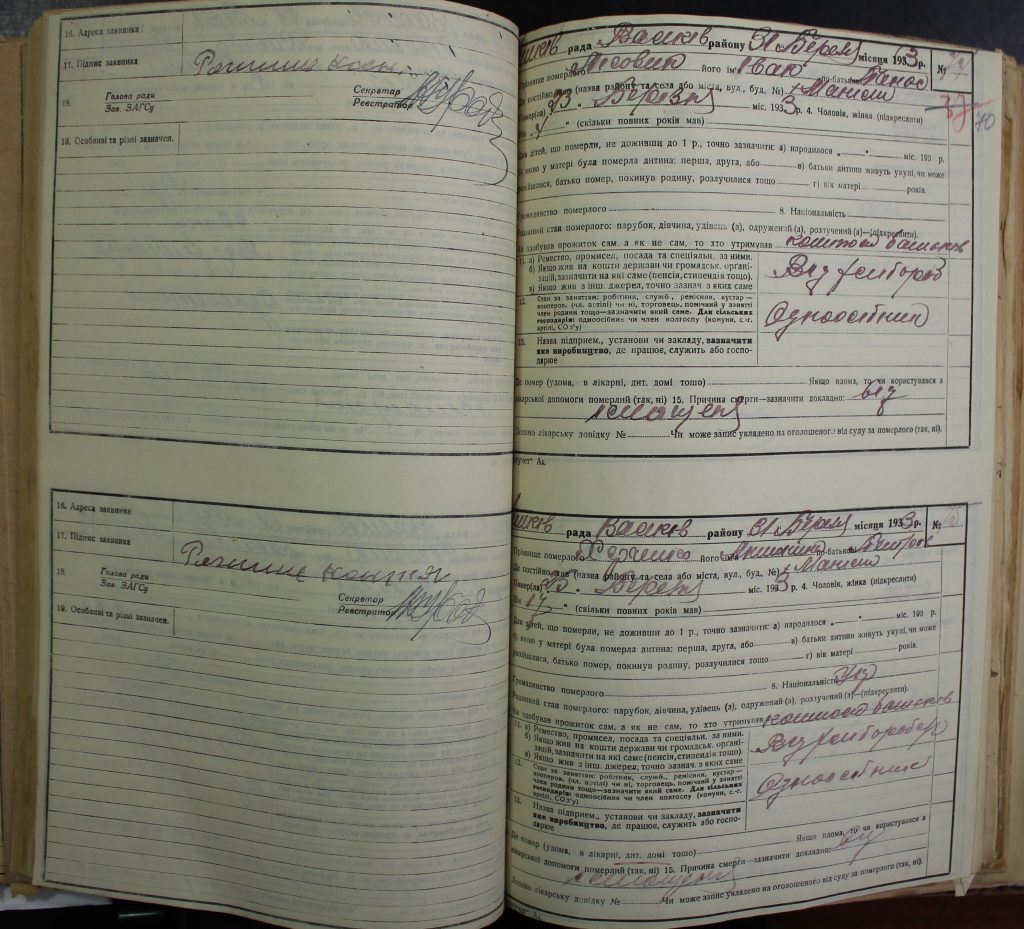 16. Адреса заявника
17. Підпис заявника
18. Голова ради
Зав. ЗАГСу
Секретар
Реєстратор
19. Особливі та різні зазначен.
рада Васьків району 31 Березня місяця 1933 р. №
Прізвище померлого Лісовик його ім'я Іван по батькові
Де постійно (назва району та села або міста, вул., буд. №)
Помер(ла) 23. Березня міс. 1933 р. 4. Чоловік, жінка (підкреслити)
37 70
Вік " (скільки повних років мав)
Для дітей, що померли, не доживши до 1 р., точно зазначити: а) народилося „ " міс. 193 р.
б) якою у матері була померла дитина: перша, друга, або в) батьки дитини живуть укупі, чи може
розійшлися, батько помер, покинув родину, розлучилися тощо г) вік матері років.
Громадянство померлого 8. Національність
Родинний стан померлого: парубок, дівчина, удівець (а), одружений (а), розлучений (а)—(підкреслити).
Чи здобував прожиток сам, а як не сам, то хто утримував коштом батьків
11. а) Ремество, промисел, посада та спеціяльн. за ними.
б) Якщо жив на кошти держави чи громадськ. органі-
зацій, зазначити на які саме (пенсія, стипендія тощо).
в) Якщо жив з інш. джерел, точно зазнач. з яких саме
Від хліборобс
12. Стан за заняттям: робітник, служб., ремісник, кустар—
кооперов. (чл. артілі) чи ні, торговець, помічний у занятті
член родини тощо—зазначити який саме. Для сільських
господарів: одноосібник чи член колгоспу (комуни, с.-г.
артілі, СОЗ'у)
Одноосібник
13. Назва підприєм., установи чи закладу, зазначити
яке виробництво, де працює, служить або госпо-
дарює
Де помер (удома, в лікарні, дит. домі тошо) Якщо вдома, то чи користувався з
лікарської допомоги померлий (так, ні) 15. Причина смерти—зазначити докладно: від
Додано лікарську довідку № Чи може запис укладено на оголошеного від суду за померлого (так, ні).
16. Адреса заявника
17. Підпис заявника
18. Голова ради
Зав. ЗАГСу
Секретар
Реєстратор
19. Особливі та різні зазначен.
рада Васьків району 31 Березня місяця 1933 р. №
Прізвище померлого його ім'я по батькові Петров
Де постійно (назва району та села або міста, вул., буд. №)
Помер(ла) 25. Березня міс. 1933 р. 4. Чоловік, жінка (підкреслити)
Вік " (скільки повних років мав)
Для дітей, що померли, не доживши до 1 р., точно зазначити: а) народилося „ " міс. 193 р.
б) якою у матері була померла дитина: перша, друга, або в) батьки дитини живуть укупі, чи може
розійшлися, батько помер, покинув родину, розлучилися тощо г) вік матері років.
Громадянство померлого 8. Національність Укр
Родинний стан померлого: парубок, дівчина, удівець (а), одружений (а), розлучений (а)—(підкреслити).
Чи здобував прожиток сам, а як не сам, то хто утримував коштом батьків
11. а) Ремество, промисел, посада та спеціяльн. за ними.
б) Якщо жив на кошти держави чи громадськ. органі-
зацій, зазначити на які саме (пенсія, стипендія тощо).
в) Якщо жив з інш. джерел, точно зазнач. з яких саме
Від хлібороб
12. Стан за заняттям: робітник, служб., ремісник, кустар—
кооперов. (чл. артілі) чи ні, торговець, помічний у занятті
член родини тощо—зазначити який саме. Для сільських
господарів: одноосібник чи член колгоспу (комуни, с.-г.
артілі, СОЗ'у)
Одноосібник
13. Назва підприєм., установи чи закладу, зазначити
яке виробництво, де працює, служить або госпо-
дарює
Де помер (удома, в лікарні, дит. домі тошо) Якщо вдома, то чи користувався з
лікарської допомоги померлий (так, ні) 15. Причина смерти—зазначити докладно: від
Додано лікарську довідку № Чи може запис укладено на оголошеного від суду за померлого (так, ні).